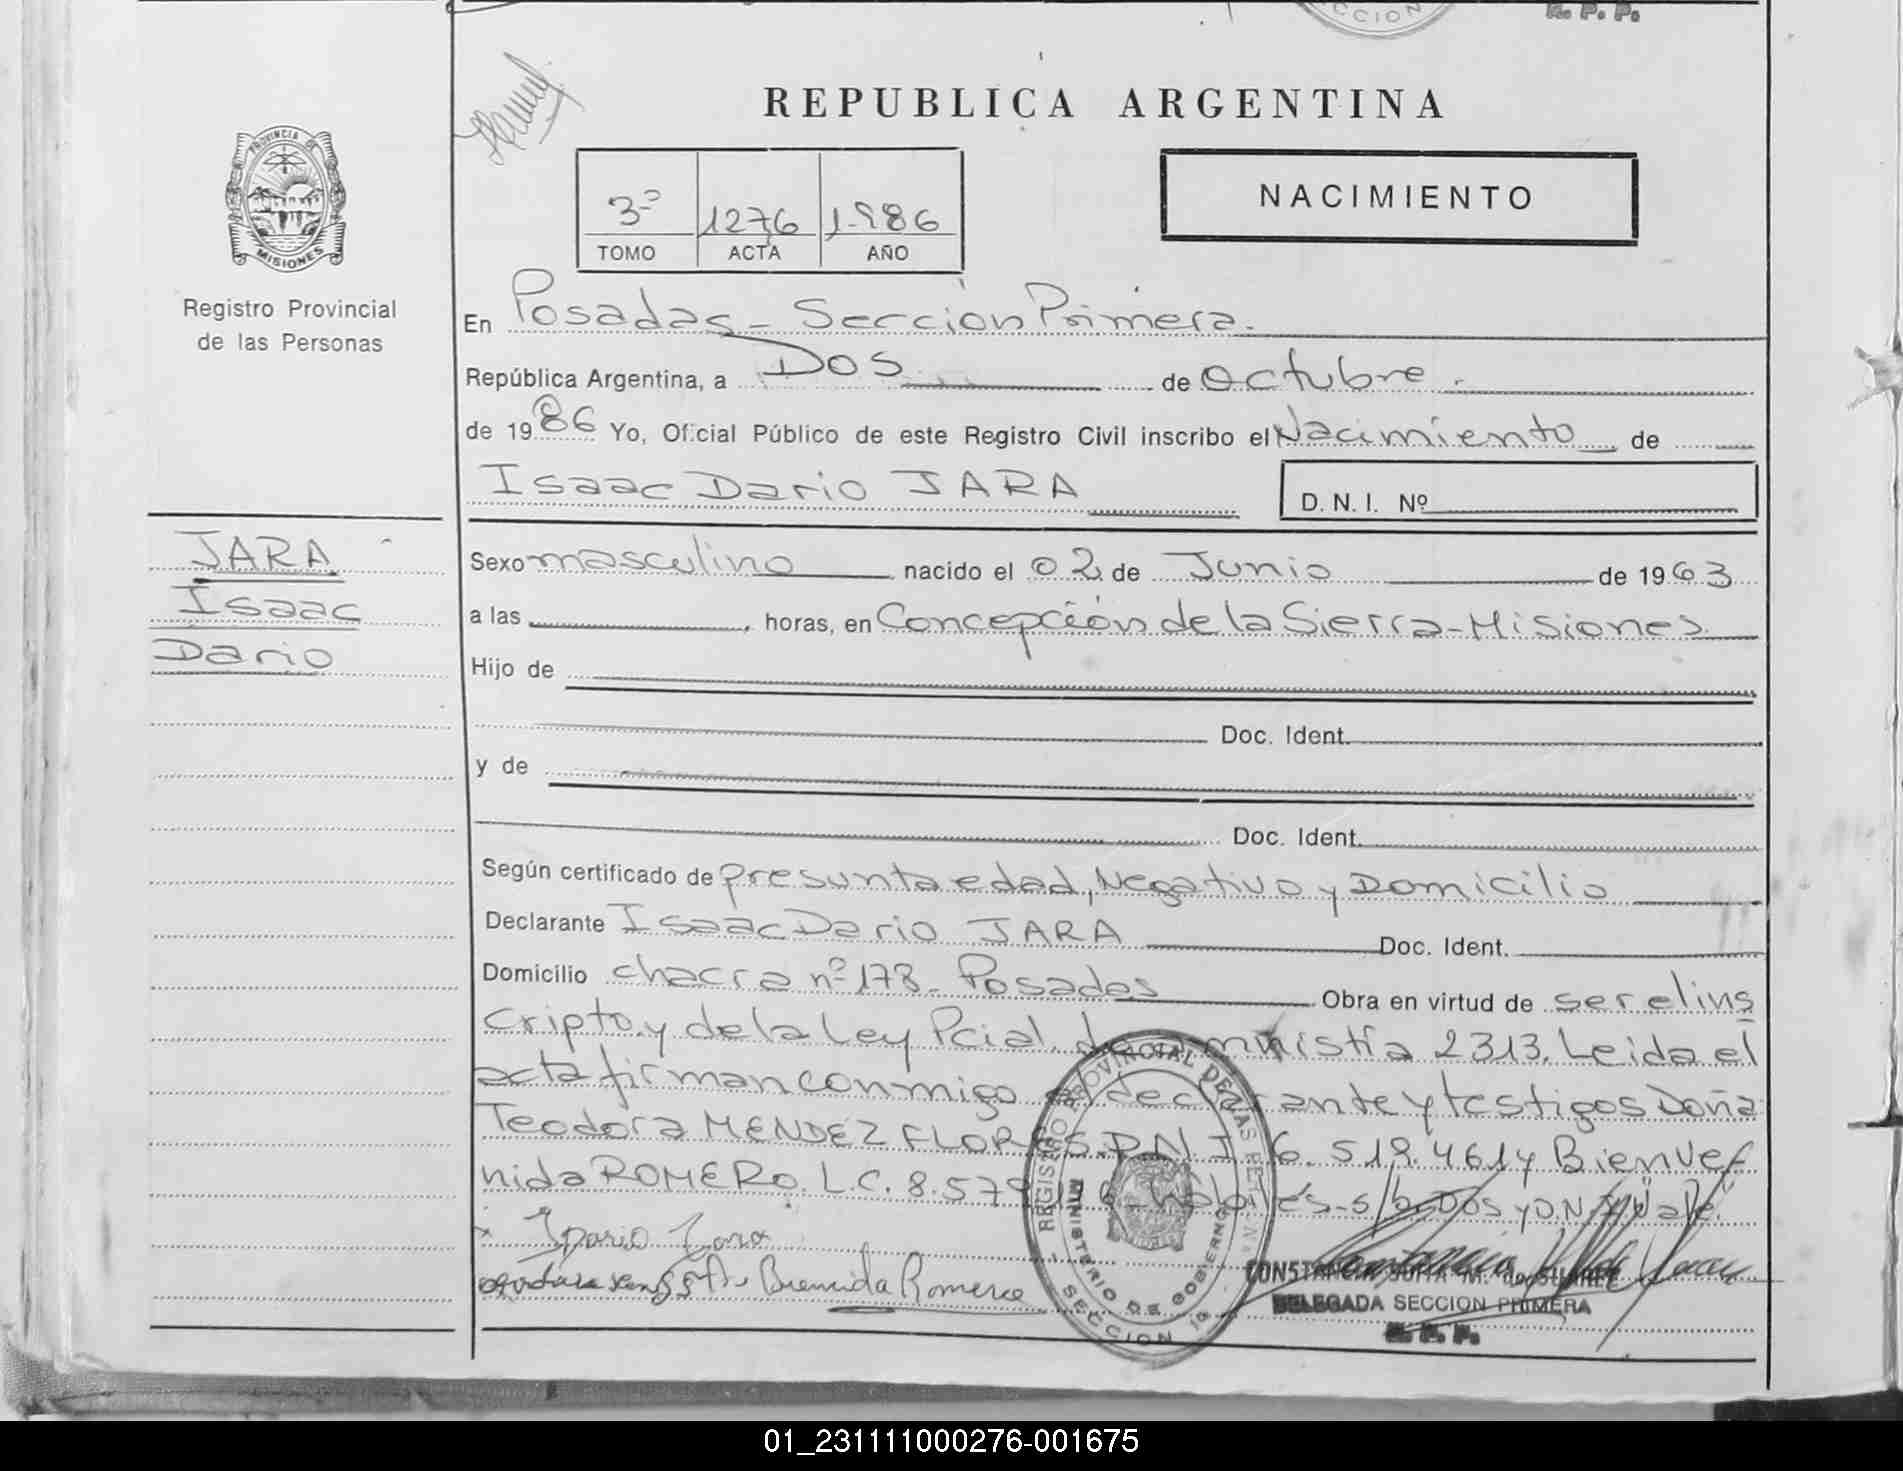 CCION
R. P. P.
REPUBLICA ARGENTINA
PROVINCIA DE
MISIONES
3º 1276 1986
TOMO ACTA AÑO
NACIMIENTO
Registro Provincial
de las Personas
En Posadas - Sección Primera.
República Argentina, a Dos de Octubre.
de 1986 Yo, Oficial Público de este Registro Civil inscribo el Nacimiento de
Isaac Dario JARA D. N. I. Nº
JARA
Isaac
Dario
Sexo masculino nacido el 02 de Junio de 1963
a las , horas, en Concepción de la Sierra - Misiones
Hijo de
Doc. Ident.
y de
Doc. Ident.
Según certificado de presunta edad, Negativo y Domicilio
Declarante Isaac Dario JARA Doc. Ident.
Domicilio chacra nº 178 - Posadas Obra en virtud de ser el ins
cripto y de la Ley Pcial. de Amnistía 2313. Leida el
acta firman conmigo el declarante y testigos Doña
Teodora MENDEZ FLORES. D.N.I. 6.519.461 y Bienve
nida ROMERO. L.C. 8.579 s/b Dos y D.N.I. Vale.
Bienvenida Romero
REGISTRO PROVINCIAL DE LAS
MINISTERIO DE GOBIERNO
SECCION 1º
CONSTANCIA
DELEGADA SECCION PRIMERA
R. P. P.
01_231111000276-001675